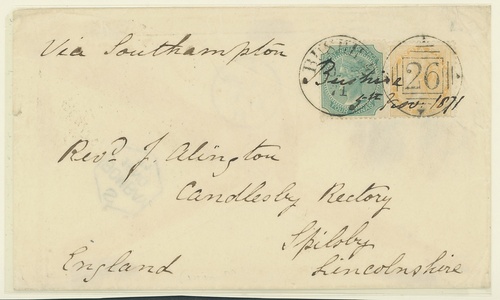 Via Southampton
BUSHI
71
26
Bushire
5th Nov. 1871
Revd J. Alington
Candlesby Rectory
Spilsby
England
Lincolnshire